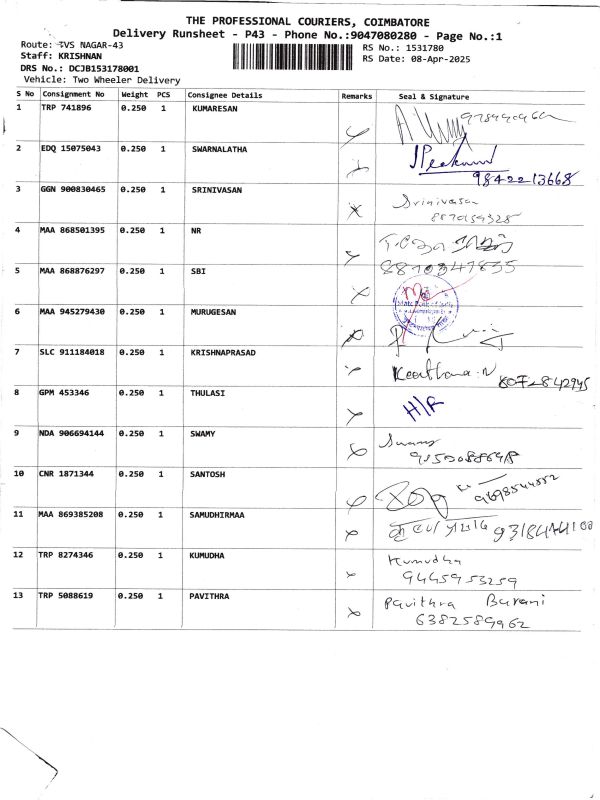 THE PROFESSIONAL COURIERS, COIMBATORE
Delivery Runsheet - P43 - Phone No.:9047080280 - Page No.:1
Route: TVS NAGAR-43
Staff: KRISHNAN
DRS No.: DCJB153178001
Vehicle: Two Wheeler Delivery
RS No.: 1531780
RS Date: 08-Apr-2025
S No Consignment No Weight PCS Consignee Details Remarks Seal & Signature
1 TRP 741896 0.250 1 KUMARESAN
2 EDQ 15075043 0.250 1 SWARNALATHA
9842213668
3 GGN 900830465 0.250 1 SRINIVASAN Srinivasan
4 MAA 868501395 0.250 1 NR
5 MAA 868876297 0.250 1 SBI 8870347835
6 MAA 945279430 0.250 1 MURUGESAN
7 SLC 911184018 0.250 1 KRISHNAPRASAD Keerthana.N
8 GPM 453346 0.250 1 THULASI H/R
9 NDA 906694144 0.250 1 SWAMY Swamy
10 CNR 1871344 0.250 1 SANTOSH
11 MAA 869385208 0.250 1 SAMUDHIRMAA
12 TRP 8274346 0.250 1 KUMUDHA Kumudha
9445953259
13 TRP 5088619 0.250 1 PAVITHRA Pavithra Barani
6382589962